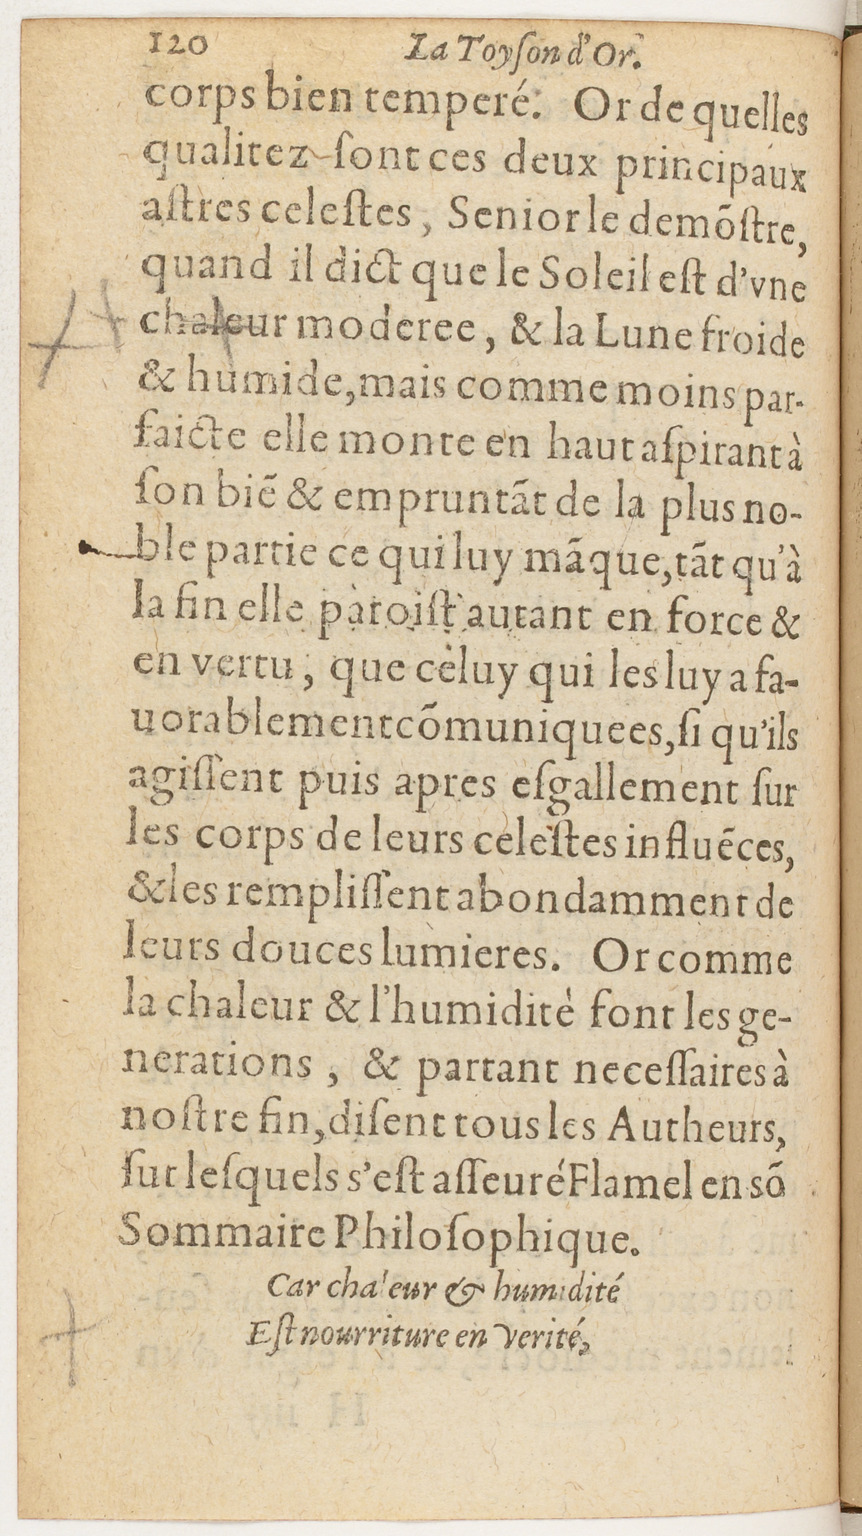 120 La Toyſon d'Or.
corps bien temperé. Or de quelles
qualitez ſont ces deux principaux
aſtres celeſtes, Senior le demõſtre,
quand il dict que le Soleil eſt d'vne
chaleur moderee, & la Lune froide
& humide, mais comme moins par-
faicte elle monte en haut aſpirant à
ſon biẽ & empruntãt de la plus no-
ble partie ce qui luy mãque, tãt qu'à
la fin elle paroiſt autant en force &
en vertu, que celuy qui les luy a fa-
uorablement cõmuniquees, ſi qu'ils
agiſſent puis apres eſgallement ſur
les corps de leurs celeſtes influẽces,
& les rempliſſent abondamment de
leurs douces lumieres. Or comme
la chaleur & l'humidité font les ge-
nerations, & partant neceſſaires à
noſtre fin, diſent tous les Autheurs,
ſur leſquels s'eſt aſſeuré Flamel en sõ
Sommaire Philoſophique.
Car chaleur & humidité
Eſt nourriture en verité,